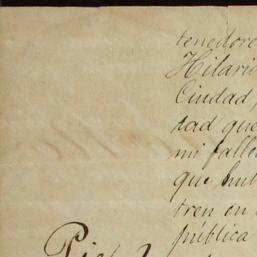 tenedore
Hilario
Ciudad,
tad que
mi falle
que hub
tren en
pública